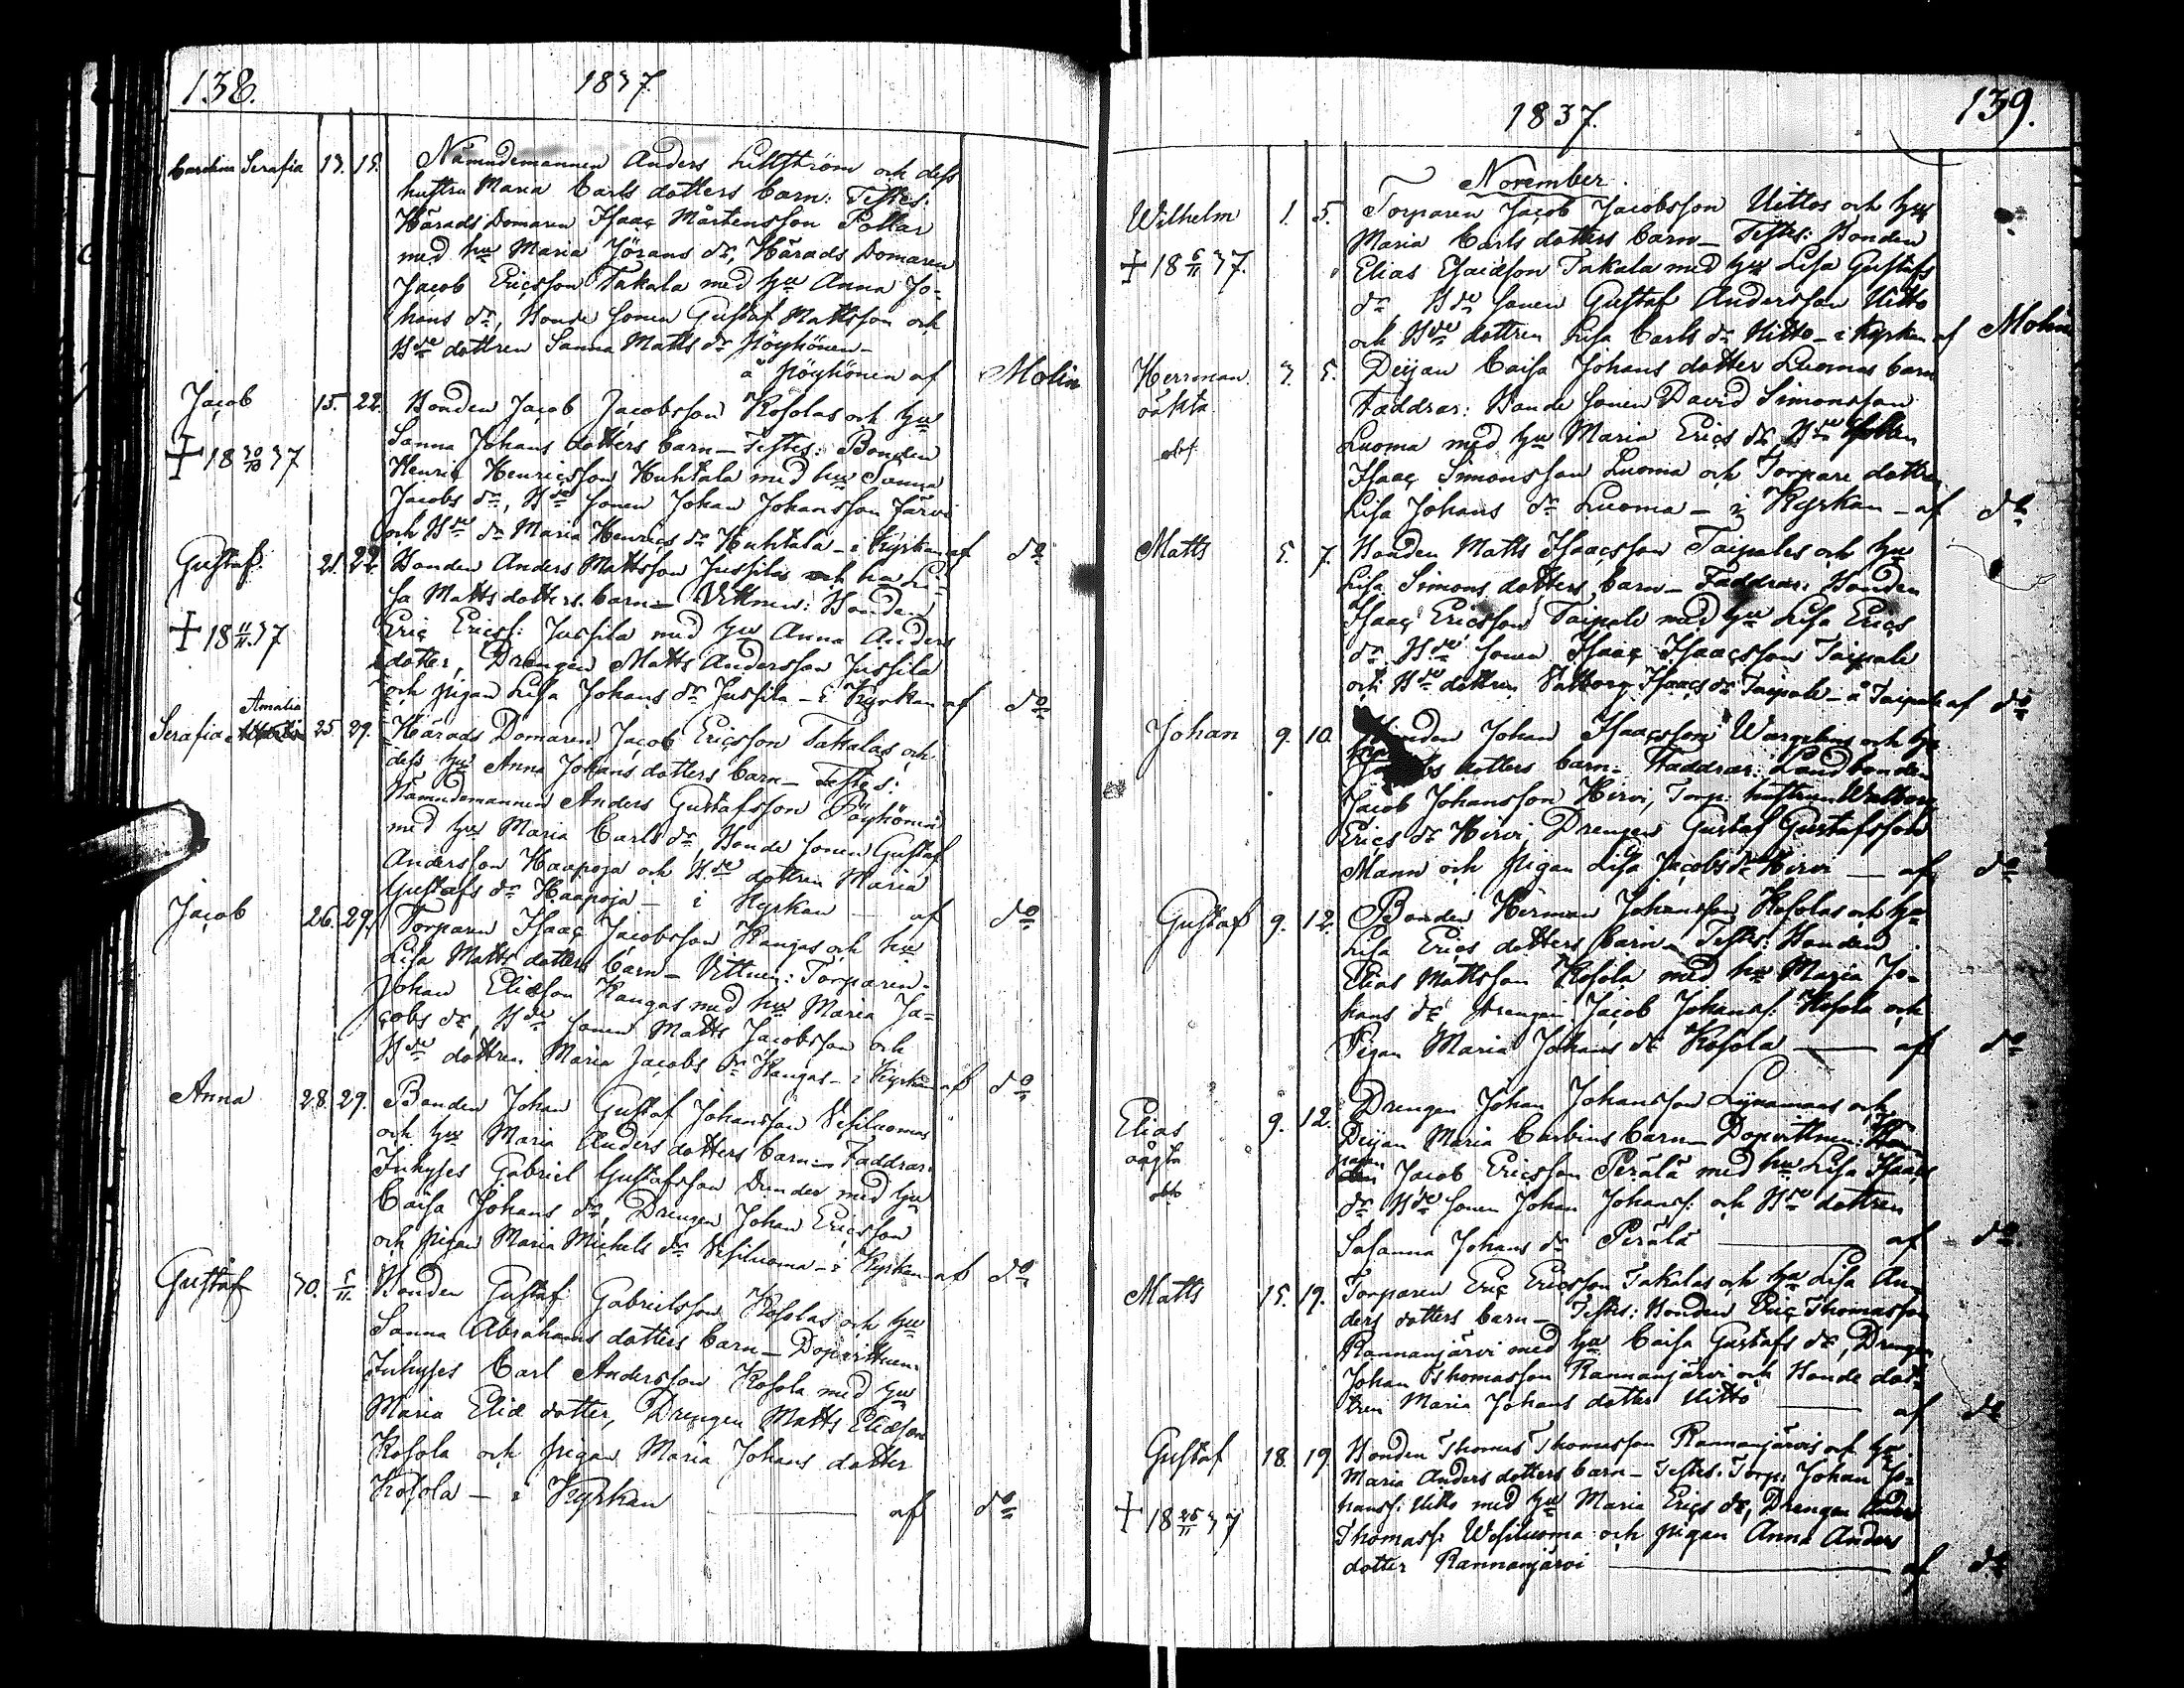 138.
1837
Carolina Serafia 13. 15. Nämndemannen Anders Lillström och dess
hustru Maria Carls dotters barn. Testes:
Härads Domaren Isaac Mårtensson Pollar
med hu Maria Jörans dr, Härads Domaren
Jacob Ericsson Takala med hu Anna Jo-
hans dr, Bonde sonen Gustaf Mattsson och
Bde dottren Sanna Matts dr Pöyhönen –
å Pöyhönen af Molin
Jacob 15. 22. Bonden Jacob Jacobsson Kosolas och hu
Sanna Johans dotters barn – Testes: Bonden
+ 18 30/10 37 Henric Henricsson Huhtala med hu Sanna
Jacobs dr, Bde sonen Johan Johansson Järvi
och Bde dr Maria Henrics dr Huhtala – i Kyrkan af do
Gustaf 21. 22. Bonden Anders Mattsson Jussilas och hu Li-
sa Matts dotters barn – Vittnen: Bonden
+ 18 11/11 37 Eric Ericss: Jussila med hu Anna Anders
dotter, Drengen Matts Andersson Jussila
och pigan Lisa Johans dr Jussila – i Kyrkan af do
Amalia
Serafia 25. 29. Härads Domaren Jacob Ericsson Takalas och
dess hu Anna Johans dotters barn – Testes:
Nämndemannen Anders Gustafsson Pöyhönen
med hu Maria Carls dr, Bonde sonen Gustaf
Andersson Haapoja och Bde dottren Maria
Gustafs dr Haapoja – i Kyrkan – af do
Jacob 26. 29. Torparen Isaac Jacobsson Kangas och hu
Lisa Matts dotters barn – Vittnen: Torparen
Johan Eliæson Kangas med hu Maria Ja-
cobs dr, Bde sonen Matts Jacobsson och
Bde dottren Maria Jacobs dr Kangas – i Kyrkan af do
Anna 28. 29. Bonden Johan Gustaf Johansson Vesiluomas
och hu Maria Anders dotters barn – Faddrar:
Inhyses Gabriel Gustafsson Dunder med hu
Caisa Johans dr, Drengen Johan Ericsson
och pigan Maria Michels dr Vesiluoma – i Kyrkan af do
Gustaf 30. 5/11 Bonden Gustaf Gabrielsson Kosolas och hu
Sanna Abrahams dotters barn – Dopvittnen:
Inhyses Carl Andersson Kosola med hu
Maria Eliæ dotter, Drengen Matts Eliæson
Kosola och pigan Maria Johans dotter
Kosola – i Kyrkan – af do
139.
1837.
November.
Wilhelm 1. 5. Torparen Jacob Jacobsson Uittos och hu
Maria Carls dotters barn – Testes: Bonden
+ 18 6/11 37. Elias Esaiæson Takala med hu Lisa Gustafs
dr Bde sonen Gustaf Andersson Uitto
och Bde dottren Lisa Carls dr Uitto – i Kyrkan af Molin
Herrman. 3. 5. Deijan Caisa Johans dotter Luomas barn
oäkta Faddrar: Bonde sonen David Simonsson
Luoma med hu Maria Erics dr Bde
Isaac Simonsson Luoma och Torpare dottren
Lisa Johans dr Luoma – i Kyrkan – af do
Matts 5. 7. Bonden Matts Isaacsson Taipales och hu
Lisa Simons dotters barn – Faddrar: Bonden
Isaac Ericsson Taipale med hu Lisa Erics
dr Bde sonen Isaac Isaacsson Taipale
och Bde dottren Valborg Isaacs dr Taipale – å Taipale af do
Johan 9. 10. Bonden Johan Isaacsson och hu
dotters barn – Faddrar: Landbonden
Jacob Johansson Hirvi, Torp: hustrun Walborg
Erics dr Hirvi, Drengen Gustaf Gustafsson
Mann och pigan Lisa Jacobs dr Hirvi – af do
Gustaf 9. 12. Bonden Herman Johansson Kosolas och hu
Lisa Erics dotters barn – Testes: Bonden
Elias Mattsson Kosola med hu Maria Jo-
hans dr drengen Jacob Johanss: Kosola och
Pigan Maria Johans dr Kosola – af do
Elias 9. 12. Drengen Johan Johansson Lynamaas och
oägta Deijan Maria Carbins barn – Dopvittnen:
Jacob Ericsson Perälä med hu Lisa Isaacs
dr Bde sonen Johan Johanss: och Bde dottren
Susanna Johans dr Perälä – af do.
Matts 15. 19. Torparen Eric Ericsson Takalas och hu Lisa An-
ders dotters barn – Testes: Bonden Eric Thomasson
Rannanjärvi med hu Caisa Gustafs dr, Drengen
Johan Thomasson Rannanjärvi och Bonde dot-
tren Maria Johans dotter Uitto – af do
Gustaf 18. 19. Bonden Thomas Thomasson Rannanjärvis och hu
Maria Anders dotters barn – Testes: Torp: Johan Jo-
+ 18 25/11 37 hanss: Uitto med hu Maria Erics dr, Drengen Anders
Thomass: Wesiluoma och pigan Anna Anders
dotter Rannanjärvi – af do